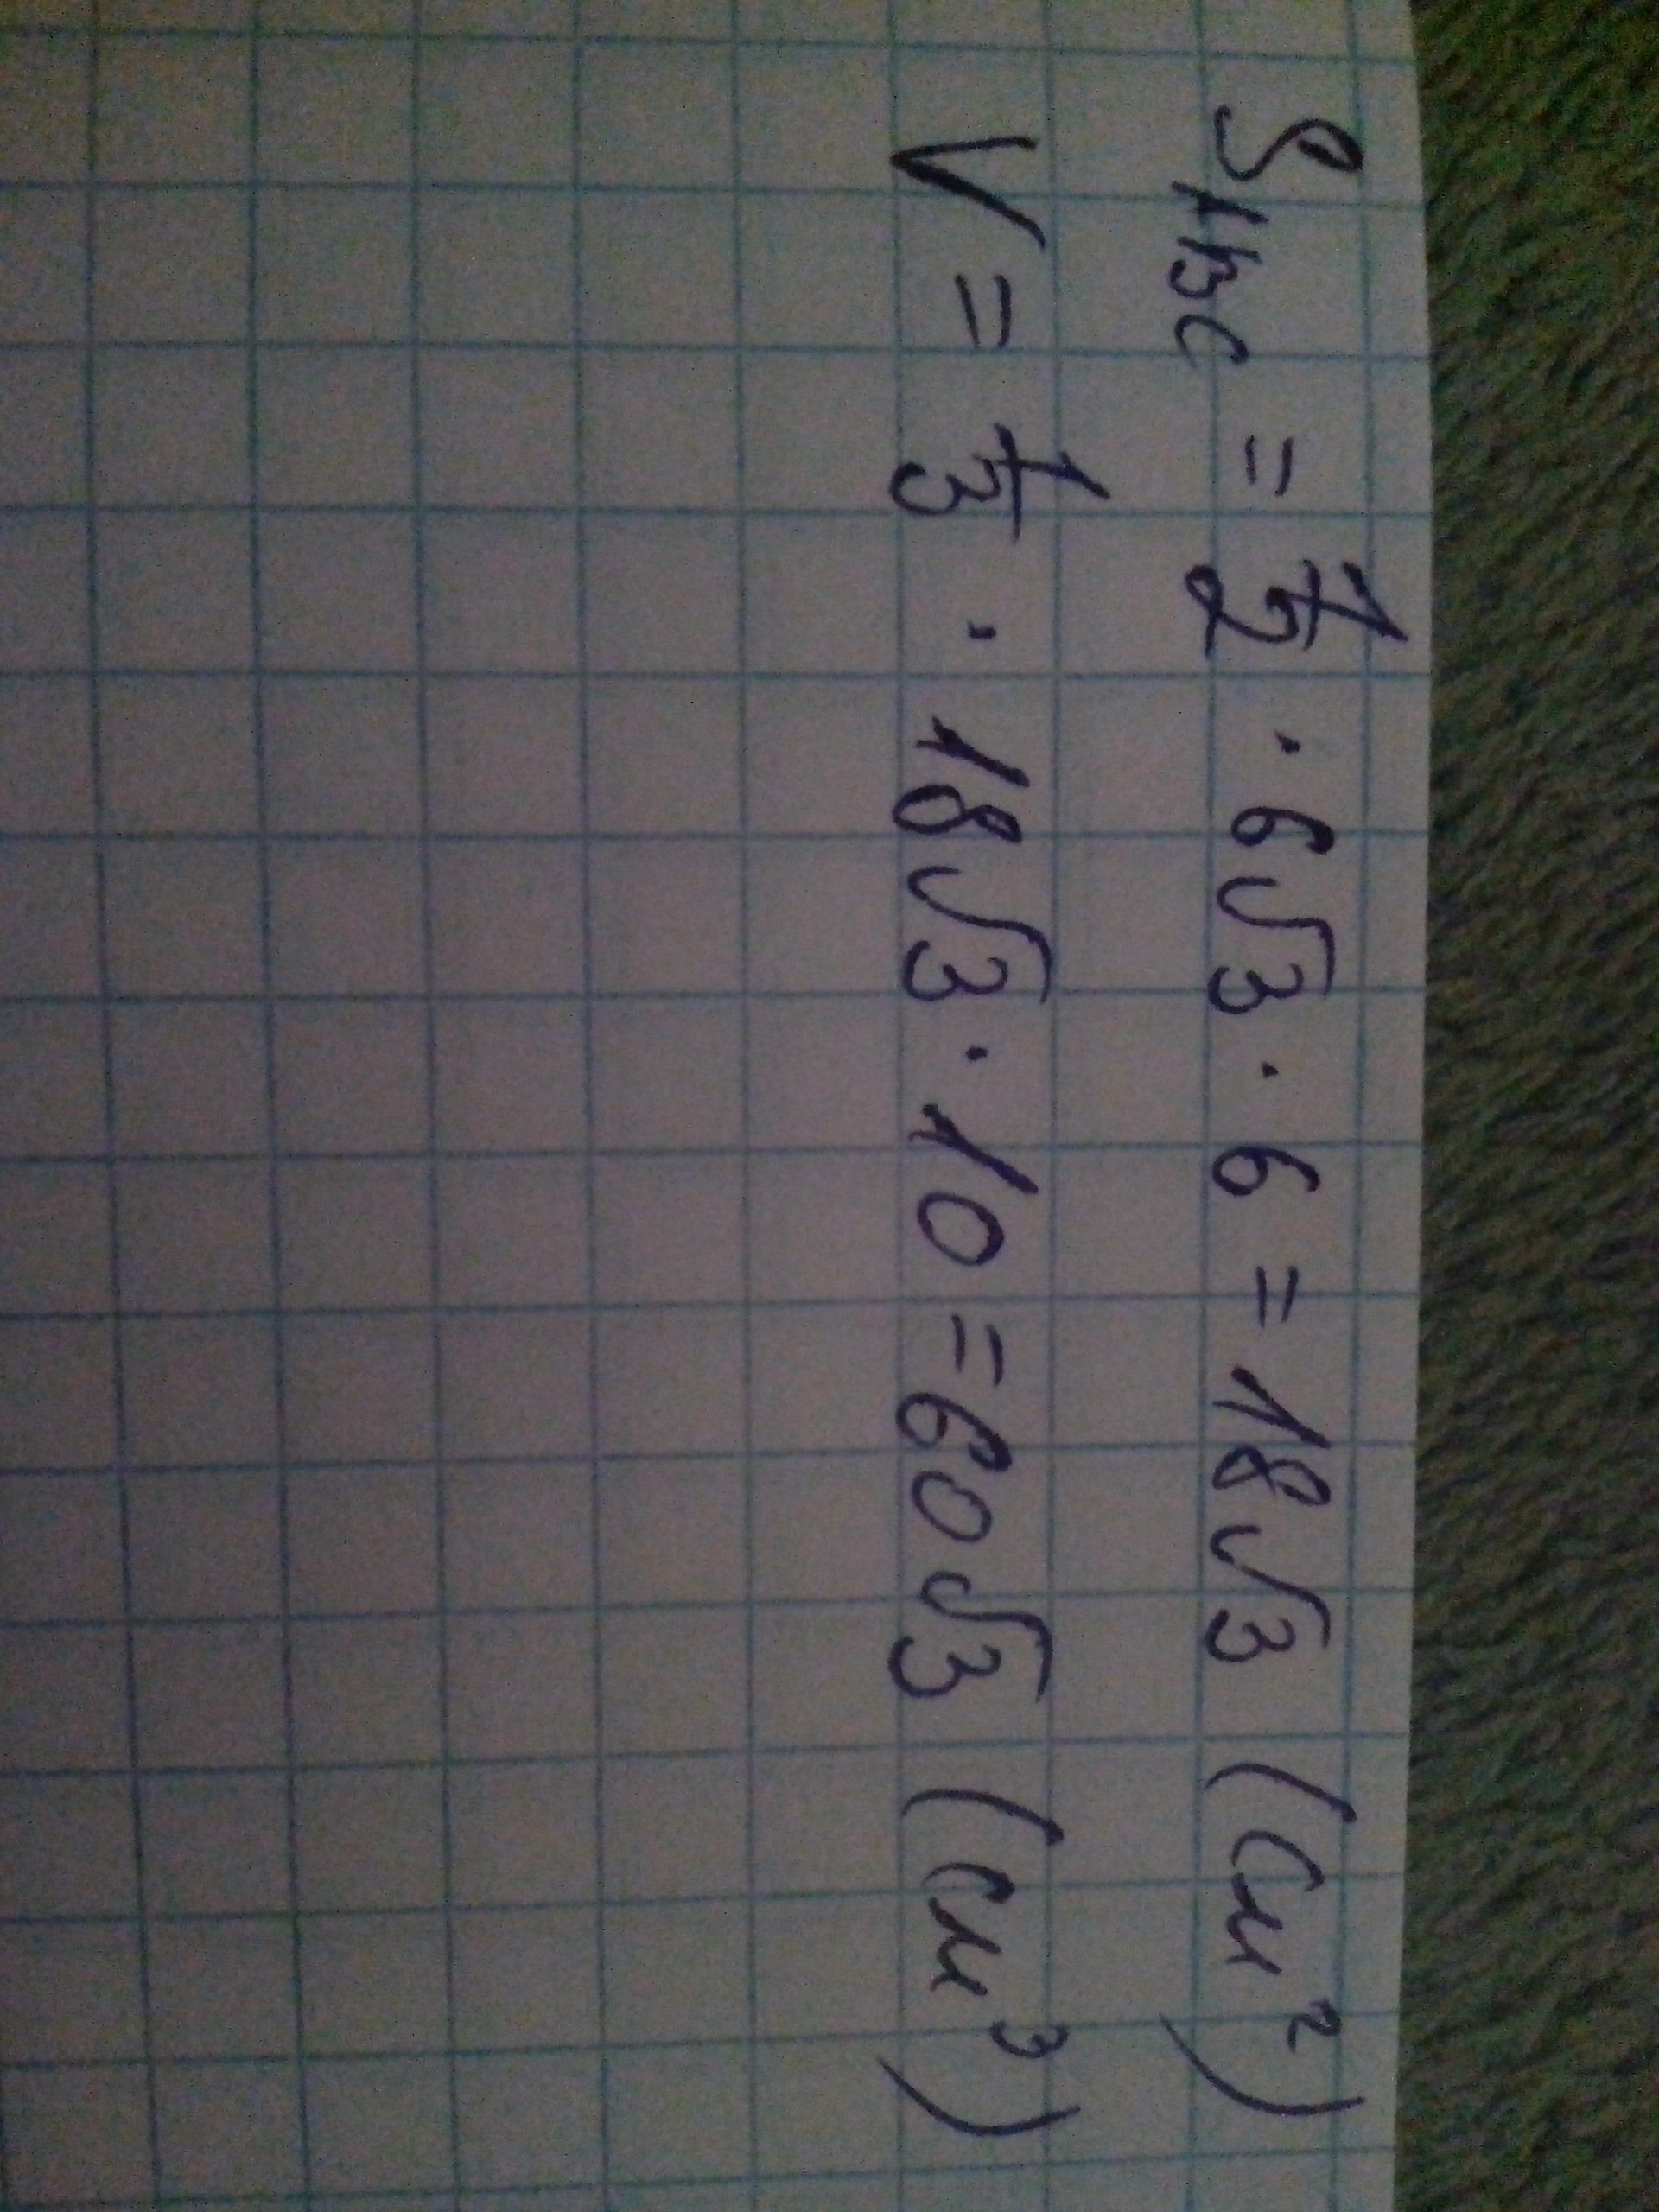 S_ABC = 1/2 · 6√3 · 6 = 18√3 (см²)
V = 1/3 · 18√3 · 10 = 60√3 (см³)